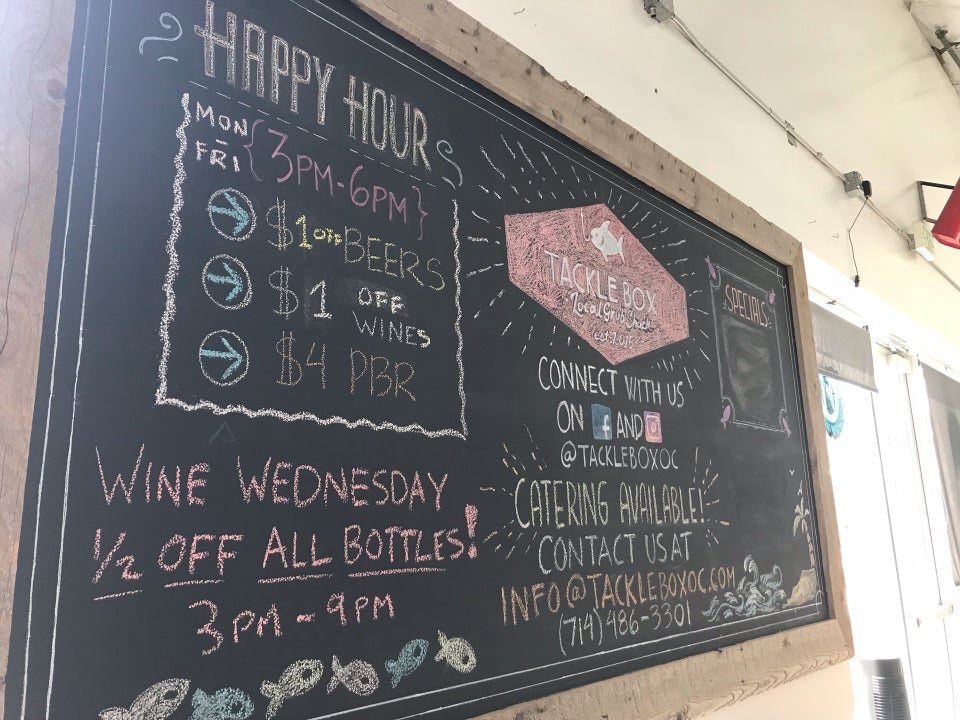 HAPPY HOUR
MON
–
FRI
3PM-6PM
$1 OFF BEERS
$1 OFF WINES
$4 PBR
WINE WEDNESDAY
1/2 OFF ALL BOTTLES!
3PM-9PM
TACKLE BOX
Local Grub Shack
est. 2015
CONNECT WITH US
ON f AND
@TACKLEBOXOC
CATERING AVAILABLE!
CONTACT US AT
INFO@TACKLEBOXOC.COM
(714)486-3301
SPECIALS